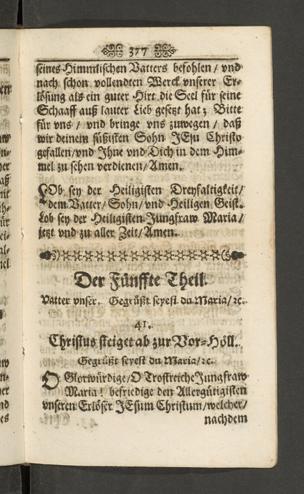 377
seines Himmlischen Vatters befohlen / vnd
nach schon vollendten Werck vnserer Er-
lösung als ein guter Hirt die Seel für seine
Schaaff auß lauter Lieb gesetzt hat; Bitte
für vns / vnd bringe vns zuwegen / daß
wir deinem süßisten Sohn JEsu Christo
gefallen / vnd Jhne vnd Dich in dem Him-
mel zu sehen verdienen / Amen.
LOb sey der Heiligisten Dreyfaltigkeit /
dem Vatter / Sohn / vnd Heiligen Geist.
Lob sey der Heiligisten Jungfraw Maria /
jetzt vnd zu aller Zeit / Amen.
Der Fünffte Theil.
Vatter vnser. Gegrüßt seyest du Maria / ꝛc.
41.
Christus steiget ab zur Vor-Höll.
Gegrüßt seyest du Maria / ꝛc.
O Glorwürdige / O Trostreiche Jungfraw
Maria! befriedige den Allergütigisten
vnseren Erlöser JEsum Christum / welcher /
nachdem